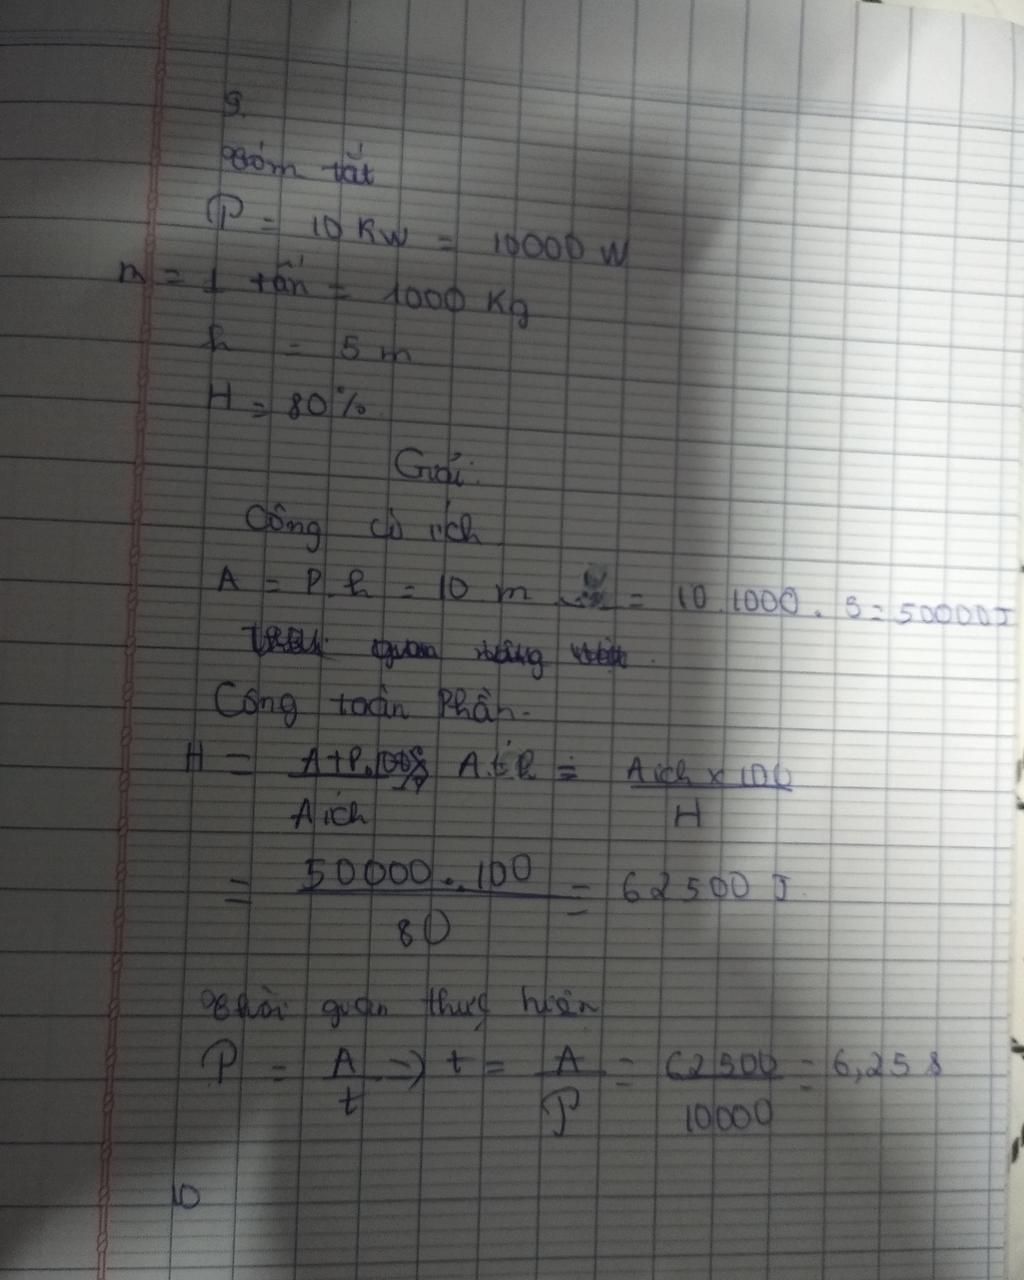 9.
Tóm tắt
P = 10 KW = 10000 W
m = 1 tấn = 1000 Kg
h = 5 m
H = 80%
Giải:
Công có ích
A = P.h = 10 m = 10.1000.5 = 50000J
Công toàn Phần.
H = Atp.100% / Aich Atp = Aich x 100 / H
= 50000.100 / 80 = 62500 J.
Thời gian thực hiện
P = A / t → t = A / P = 62500 / 10000 = 6,25 s
10